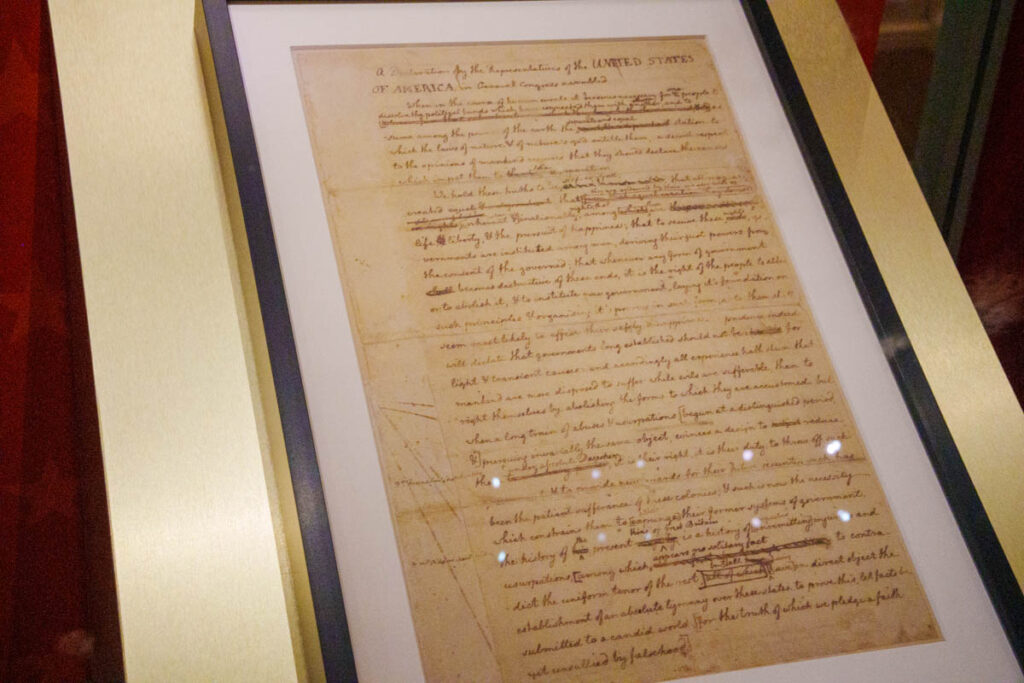 A Declaration by the Representatives of the UNITED STATES
OF AMERICA, in General Congress assembled.
When in the course of human events it becomes necessary for one people to
dissolve the political bands which have connected them with another, and to
assume among the powers of the earth the separate and equal station to
which the laws of nature & of nature's god entitle them, a decent respect
to the opinions of mankind requires that they should declare the causes
which impel them to the separation.
We hold these truths to be self-evident, that all men are
created equal
life & liberty, & the pursuit of happiness; that to secure these rights, go
vernments are instituted among men, deriving their just powers from
the consent of the governed; that whenever any form of government
becomes destructive of these ends, it is the right of the people to alter
or to abolish it, & to institute new government, laying it's foundation on
such principles & organising it's powers in such form, as to them shall
seem most likely to effect their safety & happiness. prudence indeed
will dictate that governments long established should not be changed for
light & transient causes: and accordingly all experience hath shewn that
mankind are more disposed to suffer while evils are sufferable, than to
right themselves by abolishing the forms to which they are accustomed. but
when a long train of abuses & usurpations [begun at a distinguished period,
&] pursuing invariably the same object, evinces a design to reduce
them under absolute Despotism, it is their right, it is their duty, to throw off such
& to provide new guards for their future security. such has
been the patient sufferance of these colonies; & such is now the necessity
which constrains them to [expunge] their former systems of government.
the history of the present King of Great Britain is a history of unremitting injuries and
usurpations, [among which appears no solitary fact to contra-
dict the uniform tenor of the rest, all of which] have in direct object the
establishment of an absolute tyranny over these states. to prove this, let facts be
submitted to a candid world, [for the truth of which we pledge a faith
yet unsullied by falsehood]